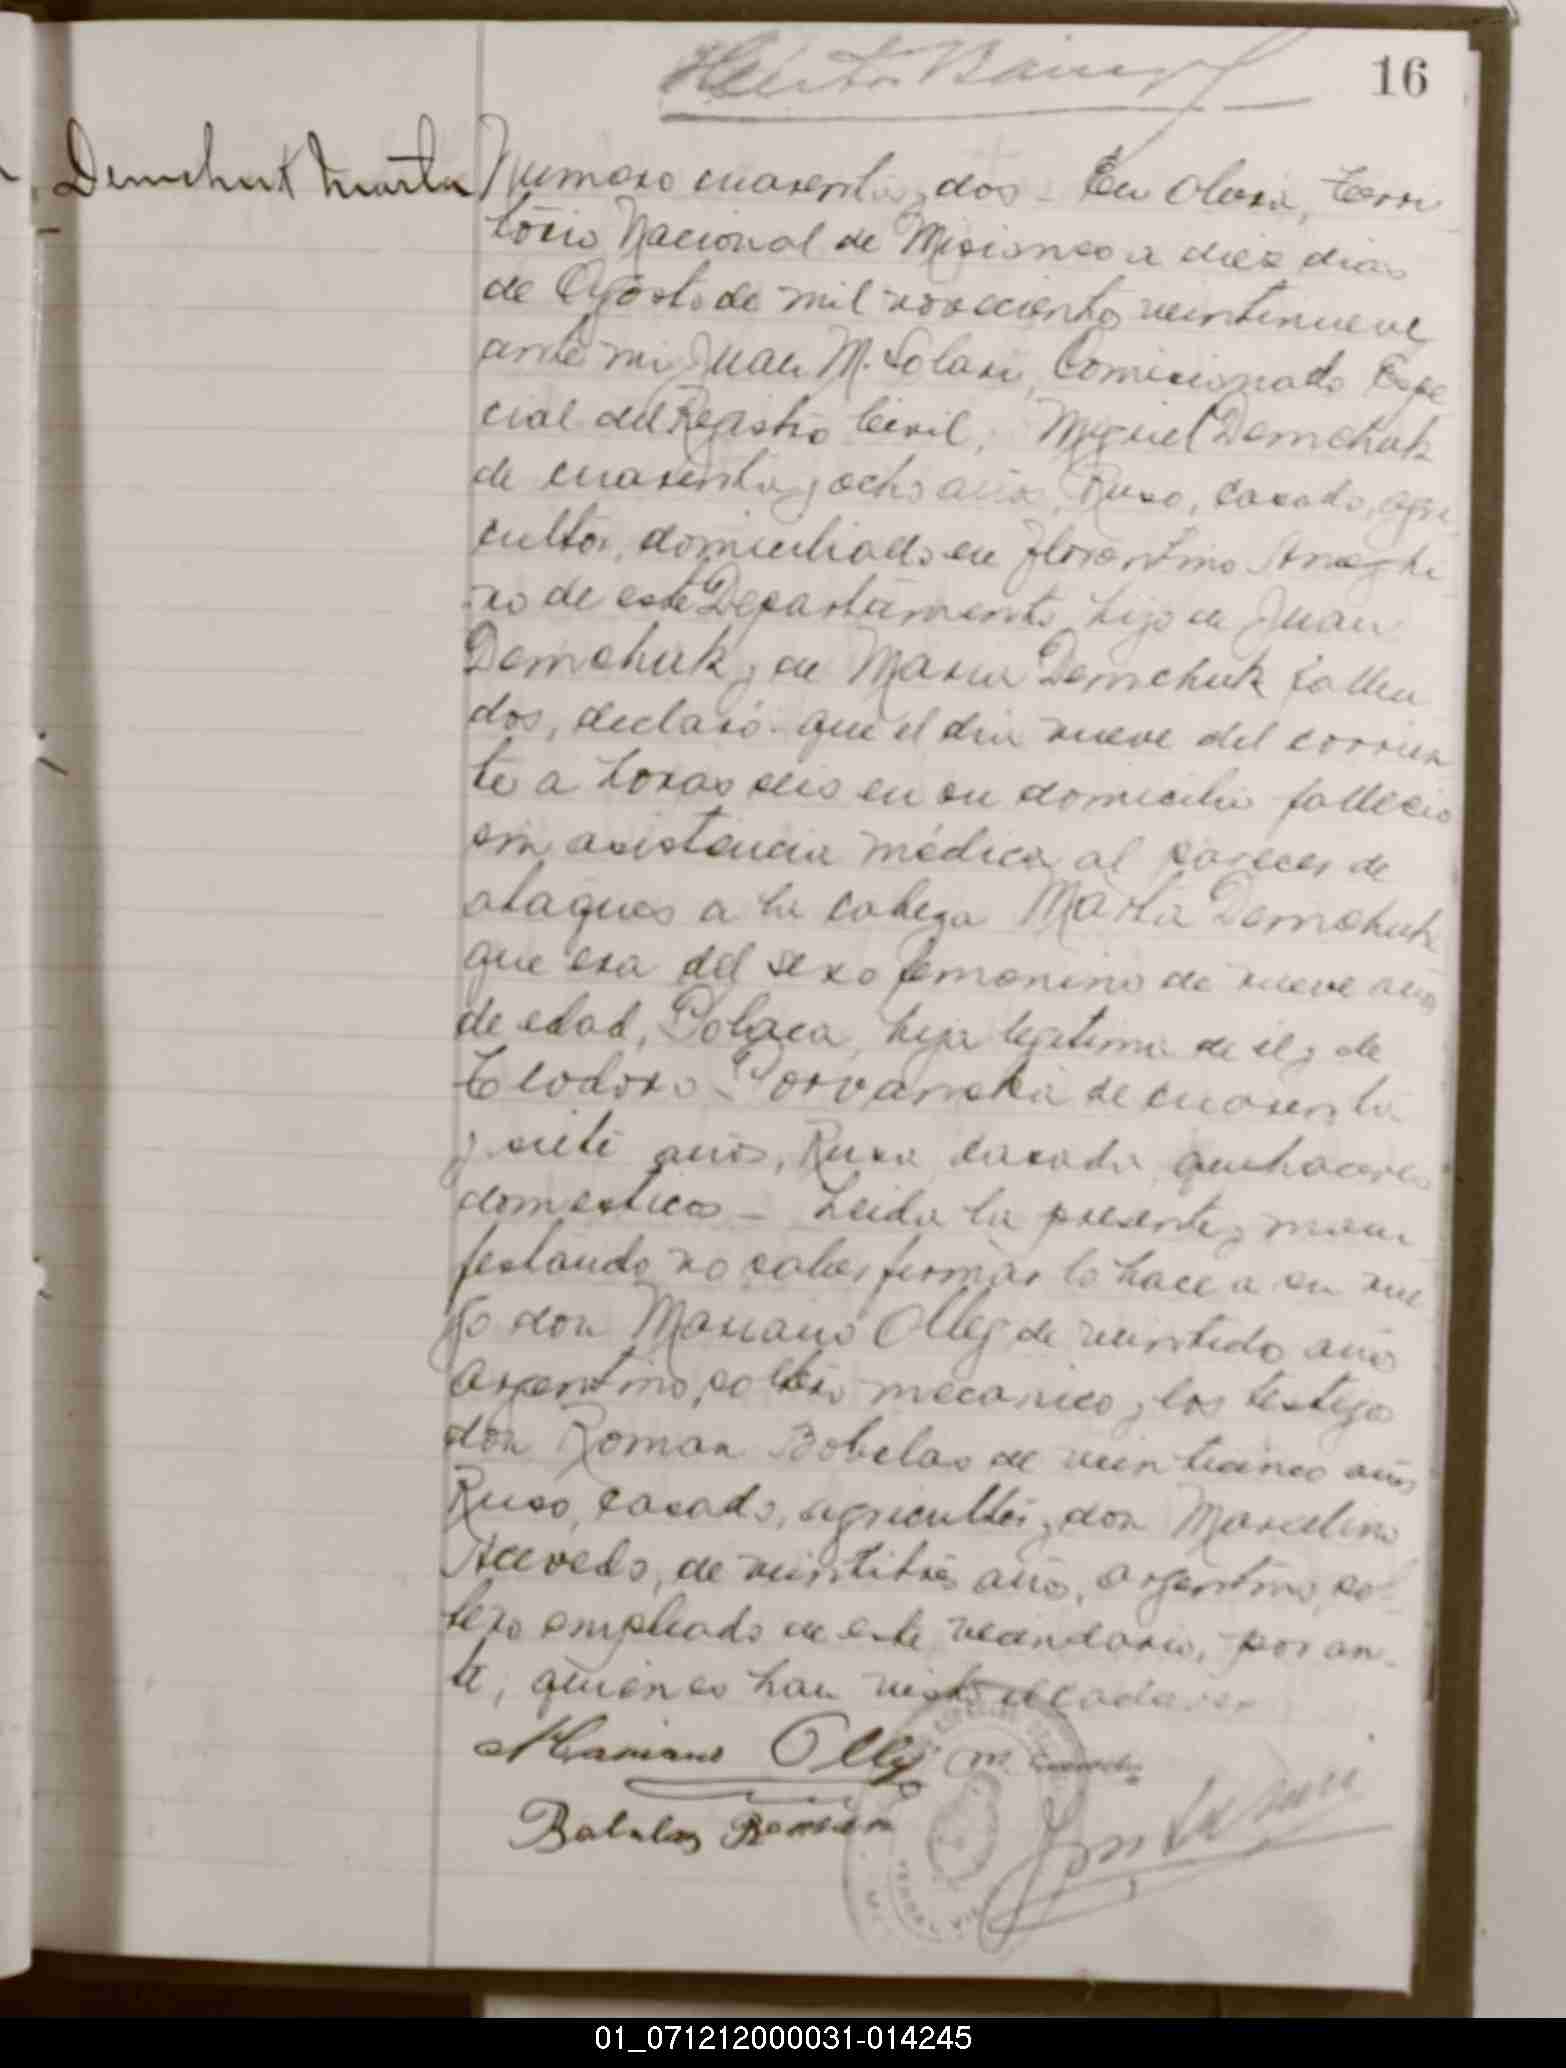 16
Demchuk Marta
Numero cuarenta y dos - En Olera, Terri
torio Nacional de Misiones a diez dias
de Agosto de mil novecientos veintinueve
ante mi Juan M. Solari, Comisionado Espe
cial del Registro Civil, Miguel Demchuk
de cuarenta y ocho años, Ruso, casado, agri
cultor, domiciliado en Florentino Ameghi
no de este Departamento, hijo de Juan
Demchuk y de Maria Demchuk falleci
dos, declaró que el dia nueve del corrien
te a horas seis en su domicilio fallecio
sin asistencia médica al parecer de
ataques a la cabeza Marta Demchuk
que era del sexo femenino de nueve años
de edad, Polaca, hija legitima de el y de
Teodora Porvanska de cuarenta
y siete años, Rusa casada, quehaceres
domesticos - Leida la presente y mani
festando no saber firmar lo hace a su rue
go don Mariano Olley de veintido años
argentino, soltero mecanico y los testigo
don Roman Bobelas de veinticinco años
Ruso, casado, agricultor y don Marcelino
Acevedo, de veintitres años, argentino, sol
tero empleado de este vecindario, por an-
te, quienes han visto el cadaver
Mariano Olley M.
Roman
01_071212000031-014245